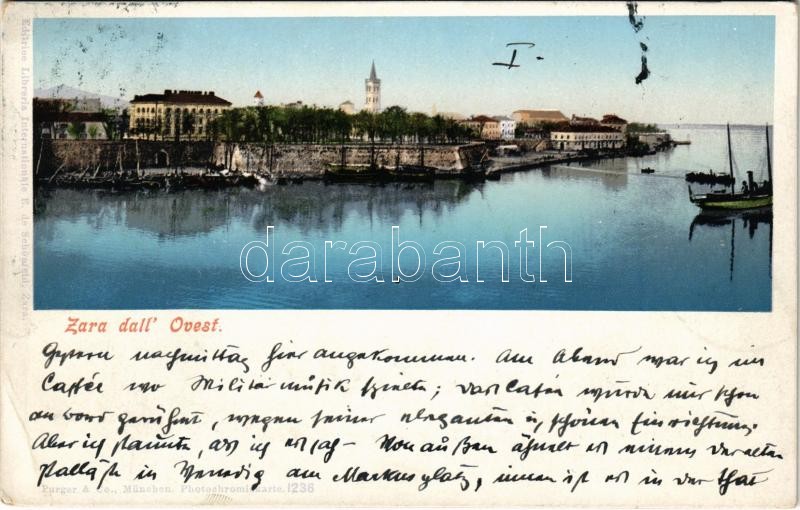 I.
darabanth
Editrice Libreria Internazionale E. de Schönfeld, Zara.
Zara dall' Ovest.
Gestern nachmittag hier angekommen. Am Abend war ich im
Caffée wo Militärmusik spielte; das Cafée wurde mir schon
an bord gerühmt, wegen seiner eleganten u. schönen Einrichtung.
Aber ich staunte, als ich es sah - Von außen ähnelt es einem der alten
Palläste in Venedig am Markusplatz, innen ist es in der That
Purger & Co., München. Photochromiekarte. 1236